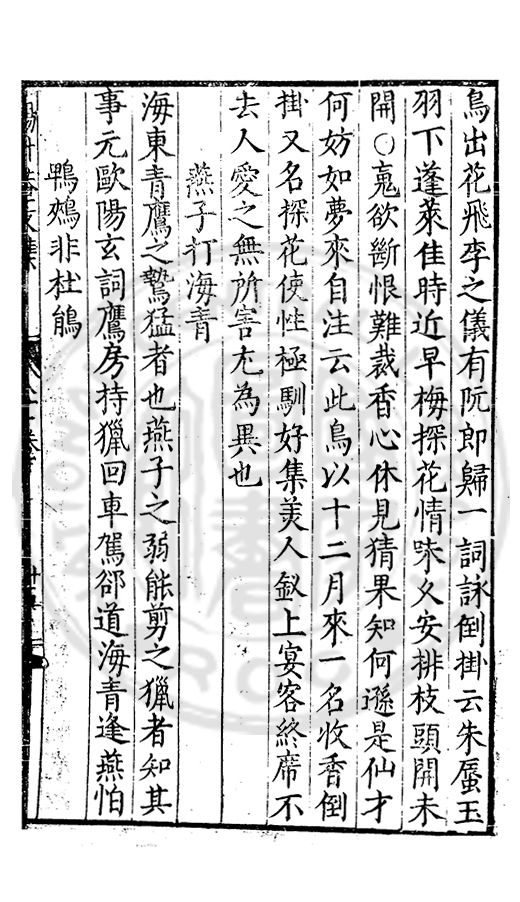 鳥出花飛李之儀有阮郎歸一詞詠倒掛云朱脣玉
羽下蓬萊佳時近早梅探花情味久安排枝頭開未
開〇䰟欲斷恨難裁香心休見猜果知何遜是仙才
何妨如夢來自注云此鳥以十二月來一名收香倒
掛又名探花使性極馴好集美人釵上宴客終席不
去人愛之無所害尤為異也
燕子打海青
海東青鷹之鷙猛者也燕子之弱能剪之獵者知其
事元歐陽玄詞鷹房持獵回車駕郤道海青逢燕怕
鴨鵊非杜鵑